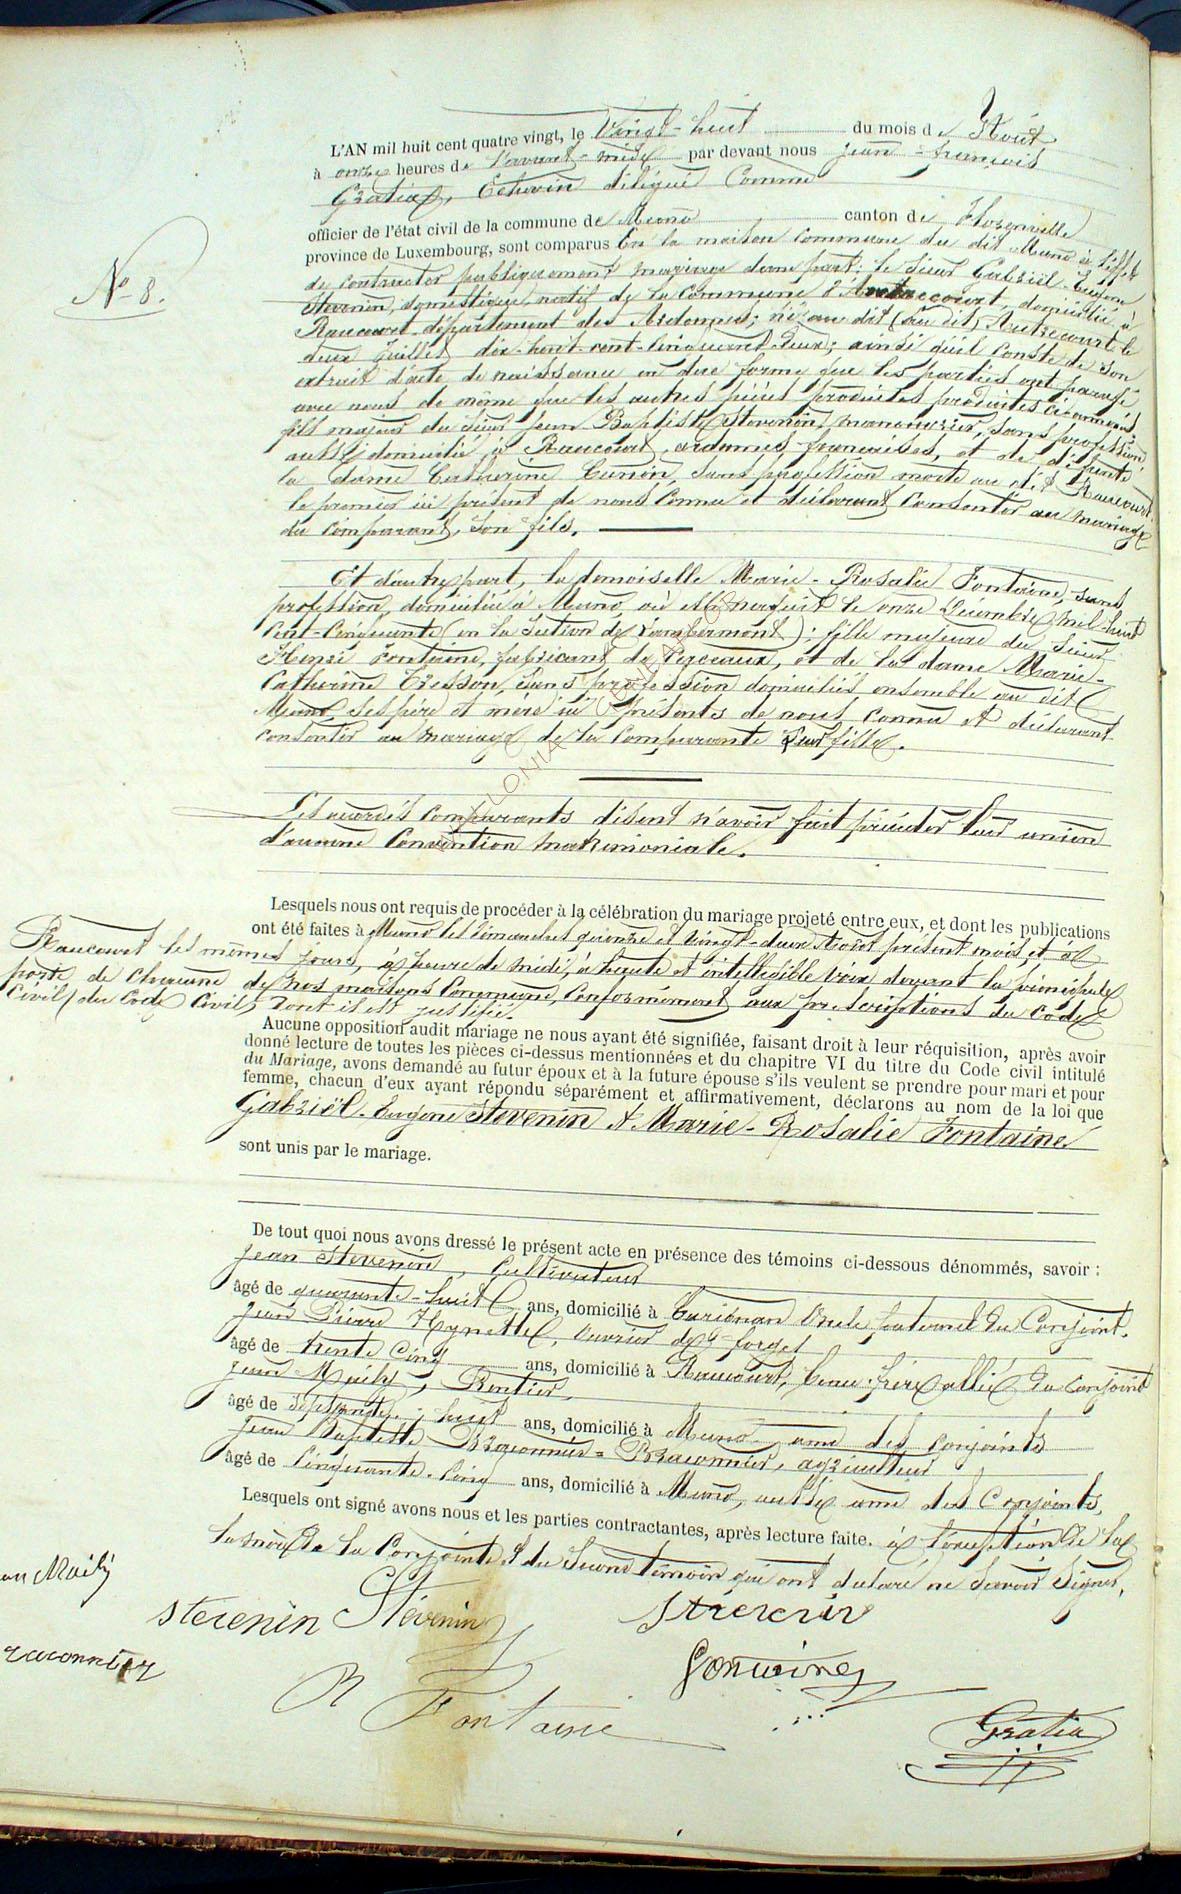 N° 8.
L'AN mil huit cent quatre vingt, le Vingt-huit du mois d' Août
à onze heures de l'avant-midi par devant nous Jean-François
Gratia, Echevin délégué Comme
officier de l'état civil de la commune de Muno canton de Florenville
province de Luxembourg, sont comparus En la maison commune du dit Muno à l'effet
de contracter publiquement mariage d'une part: le sieur Gabriël-Eugène
Stevenin, domestique, natif de la Commune d'Autrecourt, domicilié à
Raucourt département des Ardennes; né au dit (au dit) Autrecourt le
deux Juillet dix-huit-cent-cinquante-deux; ainsi qu'il conste de son
extrait d'acte de naissance en due forme que les parties ont paraphé
avec nous de même que les autres pièces produites produites
fils majeur du sieur Jean Baptiste Stevenin, manouvrier, sans profession
aussi domicilié à Raucourt, ardennes françaises, et de défunte
la dame Catherine Cunin, sans profession morte au dit Raucourt
le premier ici présent de nous Connu et déclarant Consentir au mariage
du Comparant, son fils.
Et d'autre part, la demoiselle Marie-Rosalie Fontaine, sans
profession, domiciliée à Muno, où elle naquit le onze Décembre mil-huit
Cent-Cinquante (en la Section de Lambermont); fille majeure du sieur
Henri Fontaine, fabricant de, et de la dame Marie-
Catherine Tresson, sans profession domiciliés ensemble au dit
Muno, ses père et mère ici présents de nous Connu et déclarant
consentir au mariage de la Comparante leur fille.
WALLONIA
Les accordés Comparants disent n'avoir fait précéder leur union
d'aucune Convention matrimoniale.
Lesquels nous ont requis de procéder à la célébration du mariage projeté entre eux, et dont les publications
ont été faites à Muno les dimanches quinze et vingt-deux Août présent mois, et à
Raucourt les mêmes jours, à heure de midi, à haute et intelligible voix, devant la principale
porte de Chacune de nos maisons Communes, Conformément aux prescriptions du Code
Civil (du Code Civil), dont il est justifié.
Aucune opposition audit mariage ne nous ayant été signifiée, faisant droit à leur réquisition, après avoir
donné lecture de toutes les pièces ci-dessus mentionnées et du chapitre VI du titre du Code civil intitulé
du Mariage, avons demandé au futur époux et à la future épouse s'ils veulent se prendre pour mari et pour
femme, chacun d'eux ayant répondu séparément et affirmativement, déclarons au nom de la loi que
Gabriël-Eugène Stevenin & Marie-Rosalie Fontaine
sont unis par le mariage.
De tout quoi nous avons dressé le présent acte en présence des témoins ci-dessous dénommés, savoir :
Jean Stevenin, Cultivateur
âgé de quarante-huit ans, domicilié à Carignan Oncle paternel du Conjoint.
Jean Pierre Hynette, Ouvrier de forges
âgé de trente Cinq ans, domicilié à Raucourt, beau-frère allié du Conjoint
Jean Mailx, Rentier
âgé de Septante-huit ans, domicilié à Muno ami des conjoints
Jean Baptiste Braconnier-Braconnier, agriculteur
âgé de Cinquante-Cinq ans, domicilié à Muno, aussi ami des Conjoints,
Lesquels ont signé avons nous et les parties contractantes, après lecture faite. à l'exception de la
la mère de la Conjointe & du Second témoin qui ont déclaré ne Savoir Signer.
stevenin Stévenin
Stevenin
Fontaine
R Fontaine
Gratia